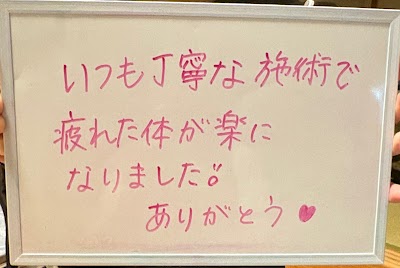 いつも丁寧な施術で
疲れた体が楽に
なりました!!
ありがとう♥